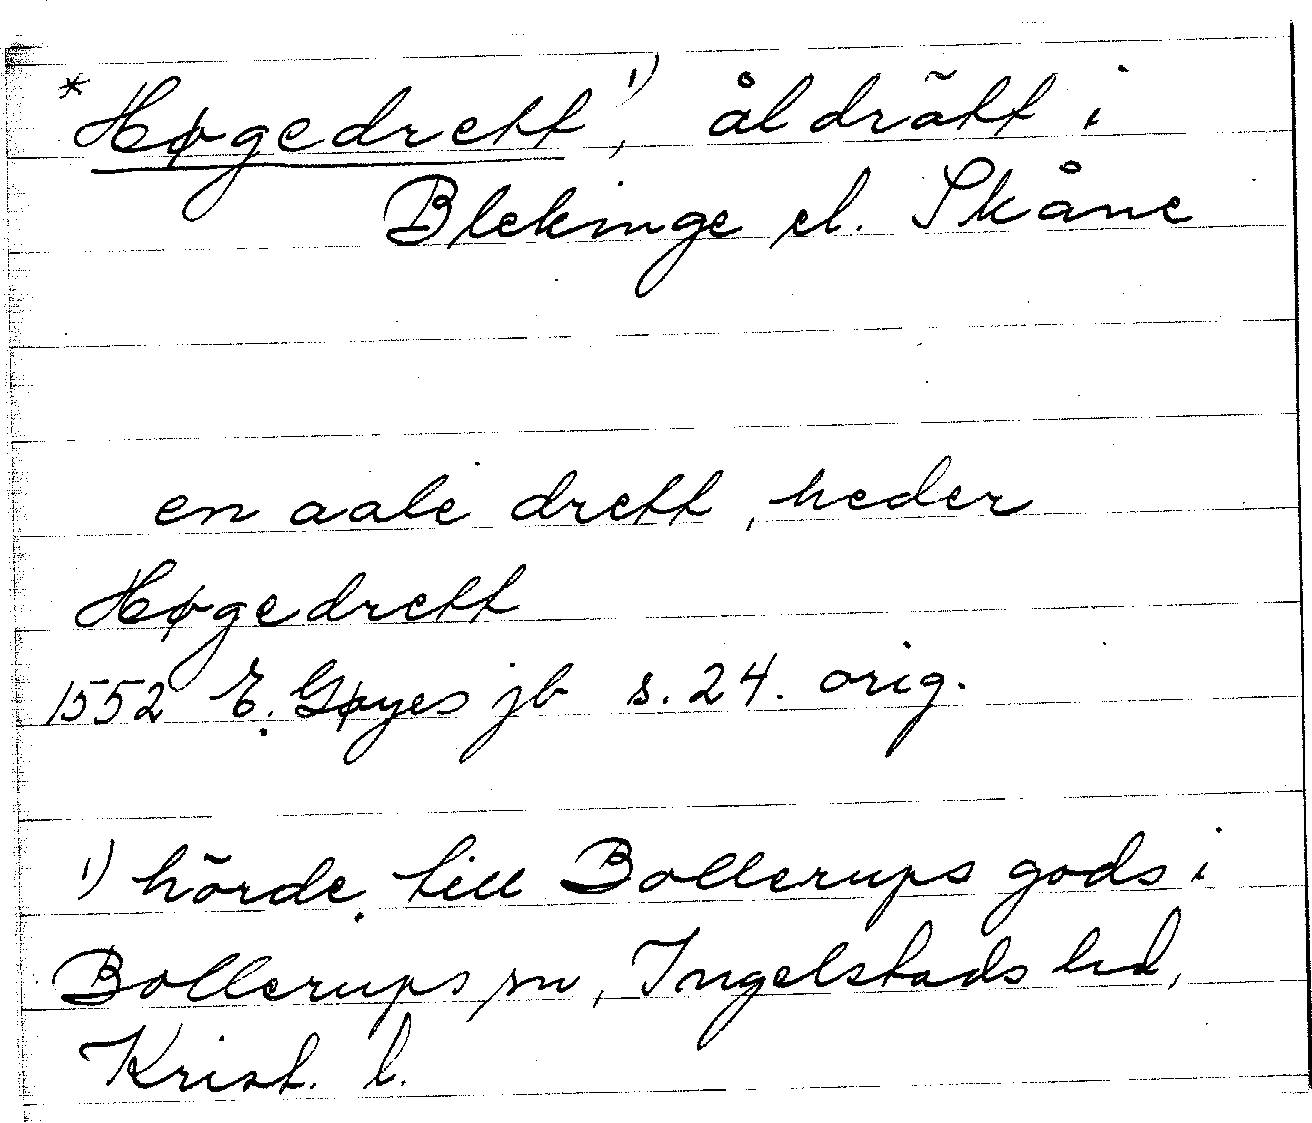 * Høgedrett, 1) åldrätt i
Blekinge el. Skåne
en aale drett, heder
Høgedrett
1552 E. Gøyes jb s. 24. orig.
1) hörde till Bollerups gods i
Bollerups sn, Ingelstads hd,
Krist. l.